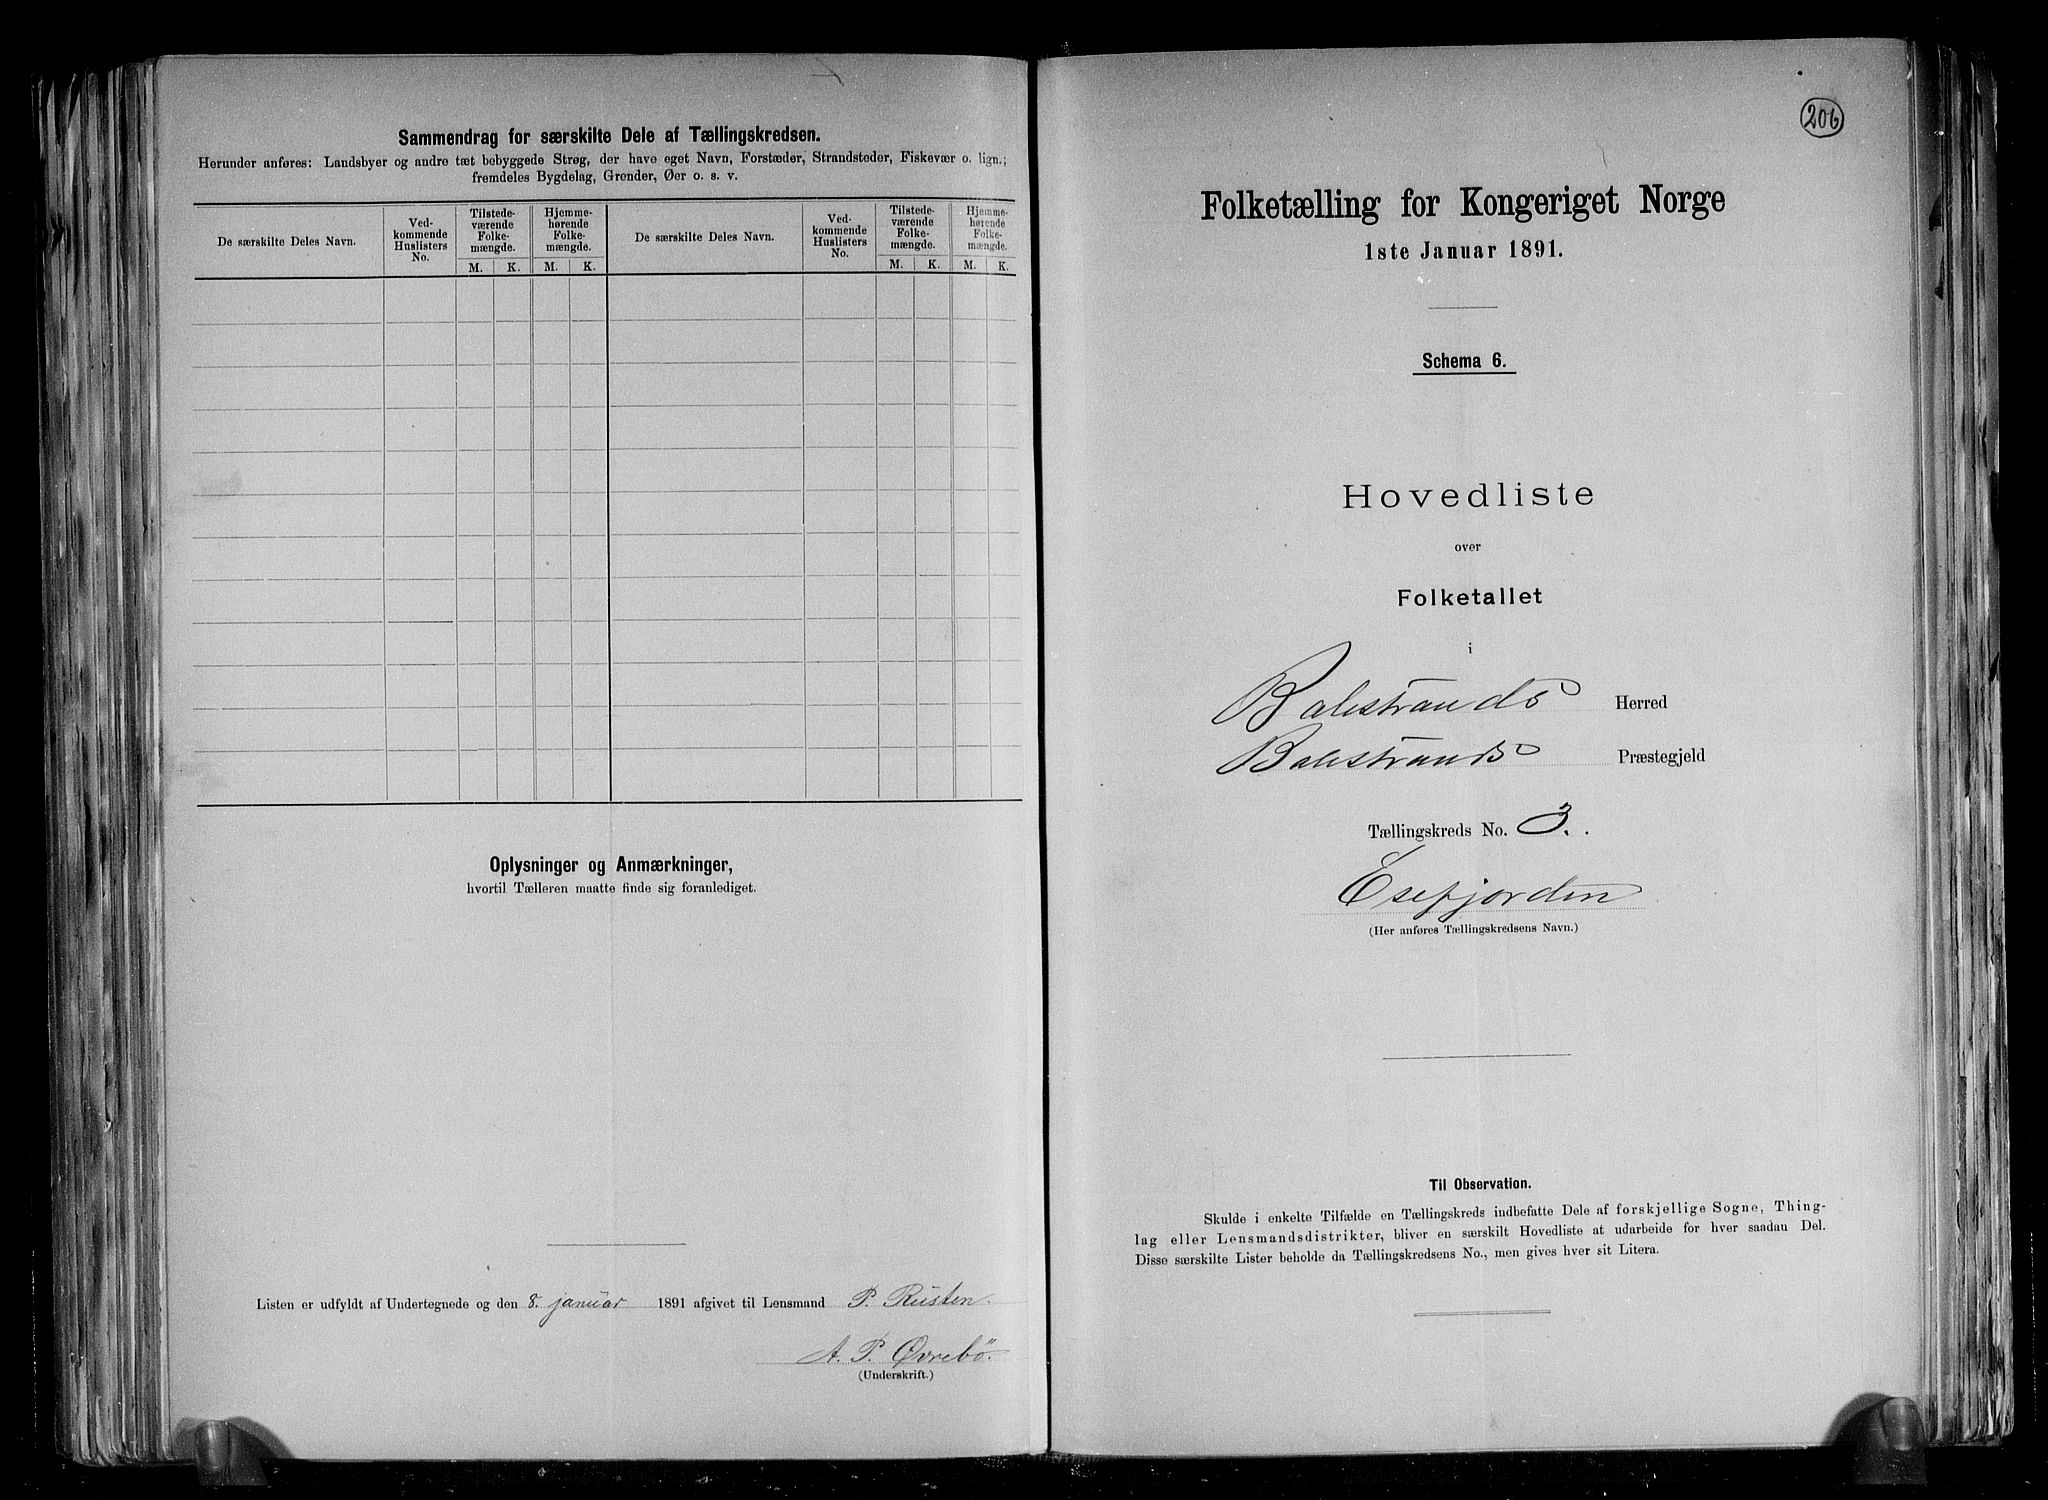 Sammendrag for særskilte Dele af Tællingskredsen.
Herunder anføres: Landsbyer og andre tæt bebyggede Strøg, der have eget Navn, Forstæder, Strandsteder, Fiskevær o. lign.;
fremdeles Bygdelag, Grender, Øer o. s. v.
De særskilte Deles Navn.
Ved-
kommende
Huslisters
No.
Tilstede-
værende
Folke-
mængde.
M. K.
Hjemme-
hørende
Folke-
mængde.
M. K.
De særskilte Deles Navn.
Ved-
kommende
Huslisters
No.
Tilstede-
værende
Folke-
mængde.
M. K.
Hjemme-
hørende
Folke-
mængde.
M. K.
Oplysninger og Anmærkninger,
hvortil Tælleren maatte finde sig foranlediget.
Listen er udfyldt af Undertegnede og den 8. januar 1891 afgivet til Lensmand P. Rusten.
A. P. Øvrebö.
(Underskrift.)
206
Folketælling for Kongeriget Norge
1ste Januar 1891.
Schema 6.
Hovedliste
over
Folketallet
i
Balestrands Herred
Balestrands Præstegjeld
Tællingskreds No. 3.
Esefjorden
(Her anføres Tællingskredsens Navn.)
Til Observation.
Skulde i enkelte Tilfælde en Tællingskreds indbefatte Dele af forskjellige Sogne, Thing-
lag eller Lensmandsdistrikter, bliver en særskilt Hovedliste at udarbeide for hver saadan Del.
Disse særskilte Lister beholde da Tællingskredsens No., men gives hver sit Litera.